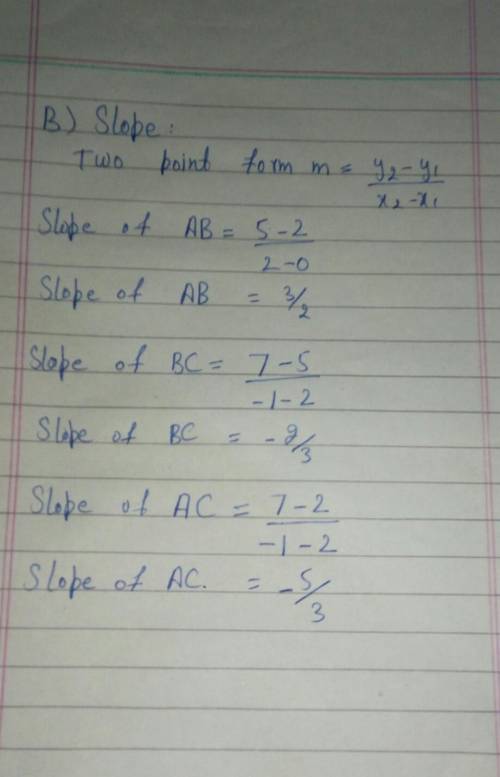 B) Slope:
Two point form m = y₂-y₁/x₂-x₁
Slope of AB = 5-2/2-0
Slope of AB = 3/2
Slope of BC = 7-5/-1-2
Slope of BC = -2/3
Slope of AC = 7-2/-1-2
Slope of AC. = -5/3